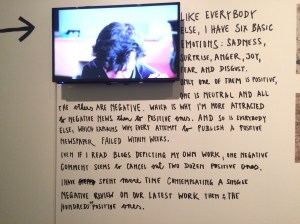 LIKE EVERYBODY
ELSE, I HAVE SIX BASIC
EMOTIONS: SADNESS,
SURPRISE, ANGER, JOY,
FEAR AND DISGUST.
ONLY ONE OF THEM IS POSITIVE,
ONE IS NEUTRAL AND ALL
THE others ARE NEGATIVE. WHICH IS WHY I'M MORE ATTRACTED
to NEGATIVE NEWS than to POSITIVE ones. AND SO IS EVERYBODY
ELSE, WHICH EXPLAINS WHY EVERY ATTEMPT to PUBLISH A POSITIVE
NEWSPAPER FAILED WITHIN WEEKS.
EVEN IF I READ BLOGS DEPICTING MY OWN WORK, ONE NEGATIVE
COMMENT SEEMS to CANCEL out TWO DOZEN POSITIVE ones.
I HAVE SPENT more TIME CONTEMPLATING A SINGLE
NEGATIVE REVIEW ON OUR LATEST WORK THEN the
HUNDREDS of POSITIVE ones.